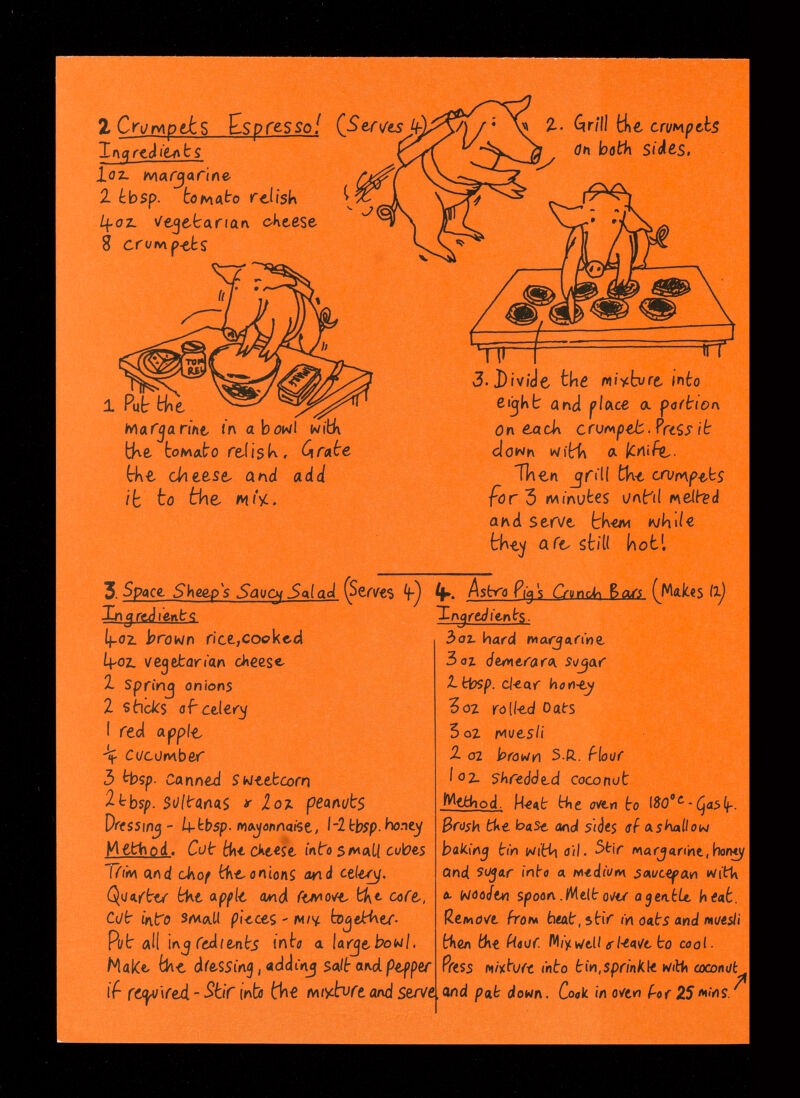 2 Crumpets Espresso! (Serves 4)
Ingredients
1oz margarine
2 tbsp. tomato relish
4oz vegetarian cheese
8 crumpets
TOM
REL
MARG
1 Put the
margarine in a bowl with
the tomato relish. Grate
the cheese and add
it to the mix.
2. Grill the crumpets
on both sides.
3. Divide the mixture into
eight and place a portion
on each crumpet. Press it
down with a knife.
Then grill the crumpets
for 3 minutes until melted
and serve them while
they are still hot!
3. Space Sheep's Saucy Salad (Serves 4)
Ingredients
4oz brown rice, cooked
4oz vegetarian cheese
2 spring onions
2 sticks of celery
1 red apple
¼ cucumber
3 tbsp. canned sweetcorn
2 tbsp. sultanas & 2oz peanuts
Dressing - 4 tbsp. mayonnaise, 1-2 tbsp. honey
Method. Cut the cheese into small cubes
Trim and chop the onions and celery.
Quarter the apple and remove the core,
cut into small pieces - mix together.
Put all ingredients into a large bowl.
Make the dressing, adding salt and pepper
if required - Stir into the mixture and serve.
4. Astro Pig's Crunch Bars (Makes 12)
Ingredients.
3oz hard margarine
3oz demerara sugar
2 tbsp. clear honey
3oz rolled oats
3oz muesli
2 oz brown S.R. flour
1 oz shredded coconut
Method. Heat the oven to 180°C - Gas 4.
Brush the base and sides of a shallow
baking tin with oil. Stir margarine, honey
and sugar into a medium saucepan with
a wooden spoon. Melt over a gentle heat.
Remove from heat, stir in oats and muesli
then the flour. Mix well & leave to cool.
Press mixture into tin, sprinkle with coconut
and pat down. Cook in oven for 25 mins.